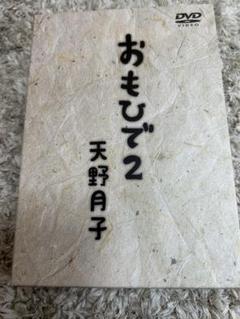 おもひで2
天野月子
DVD
VIDEO